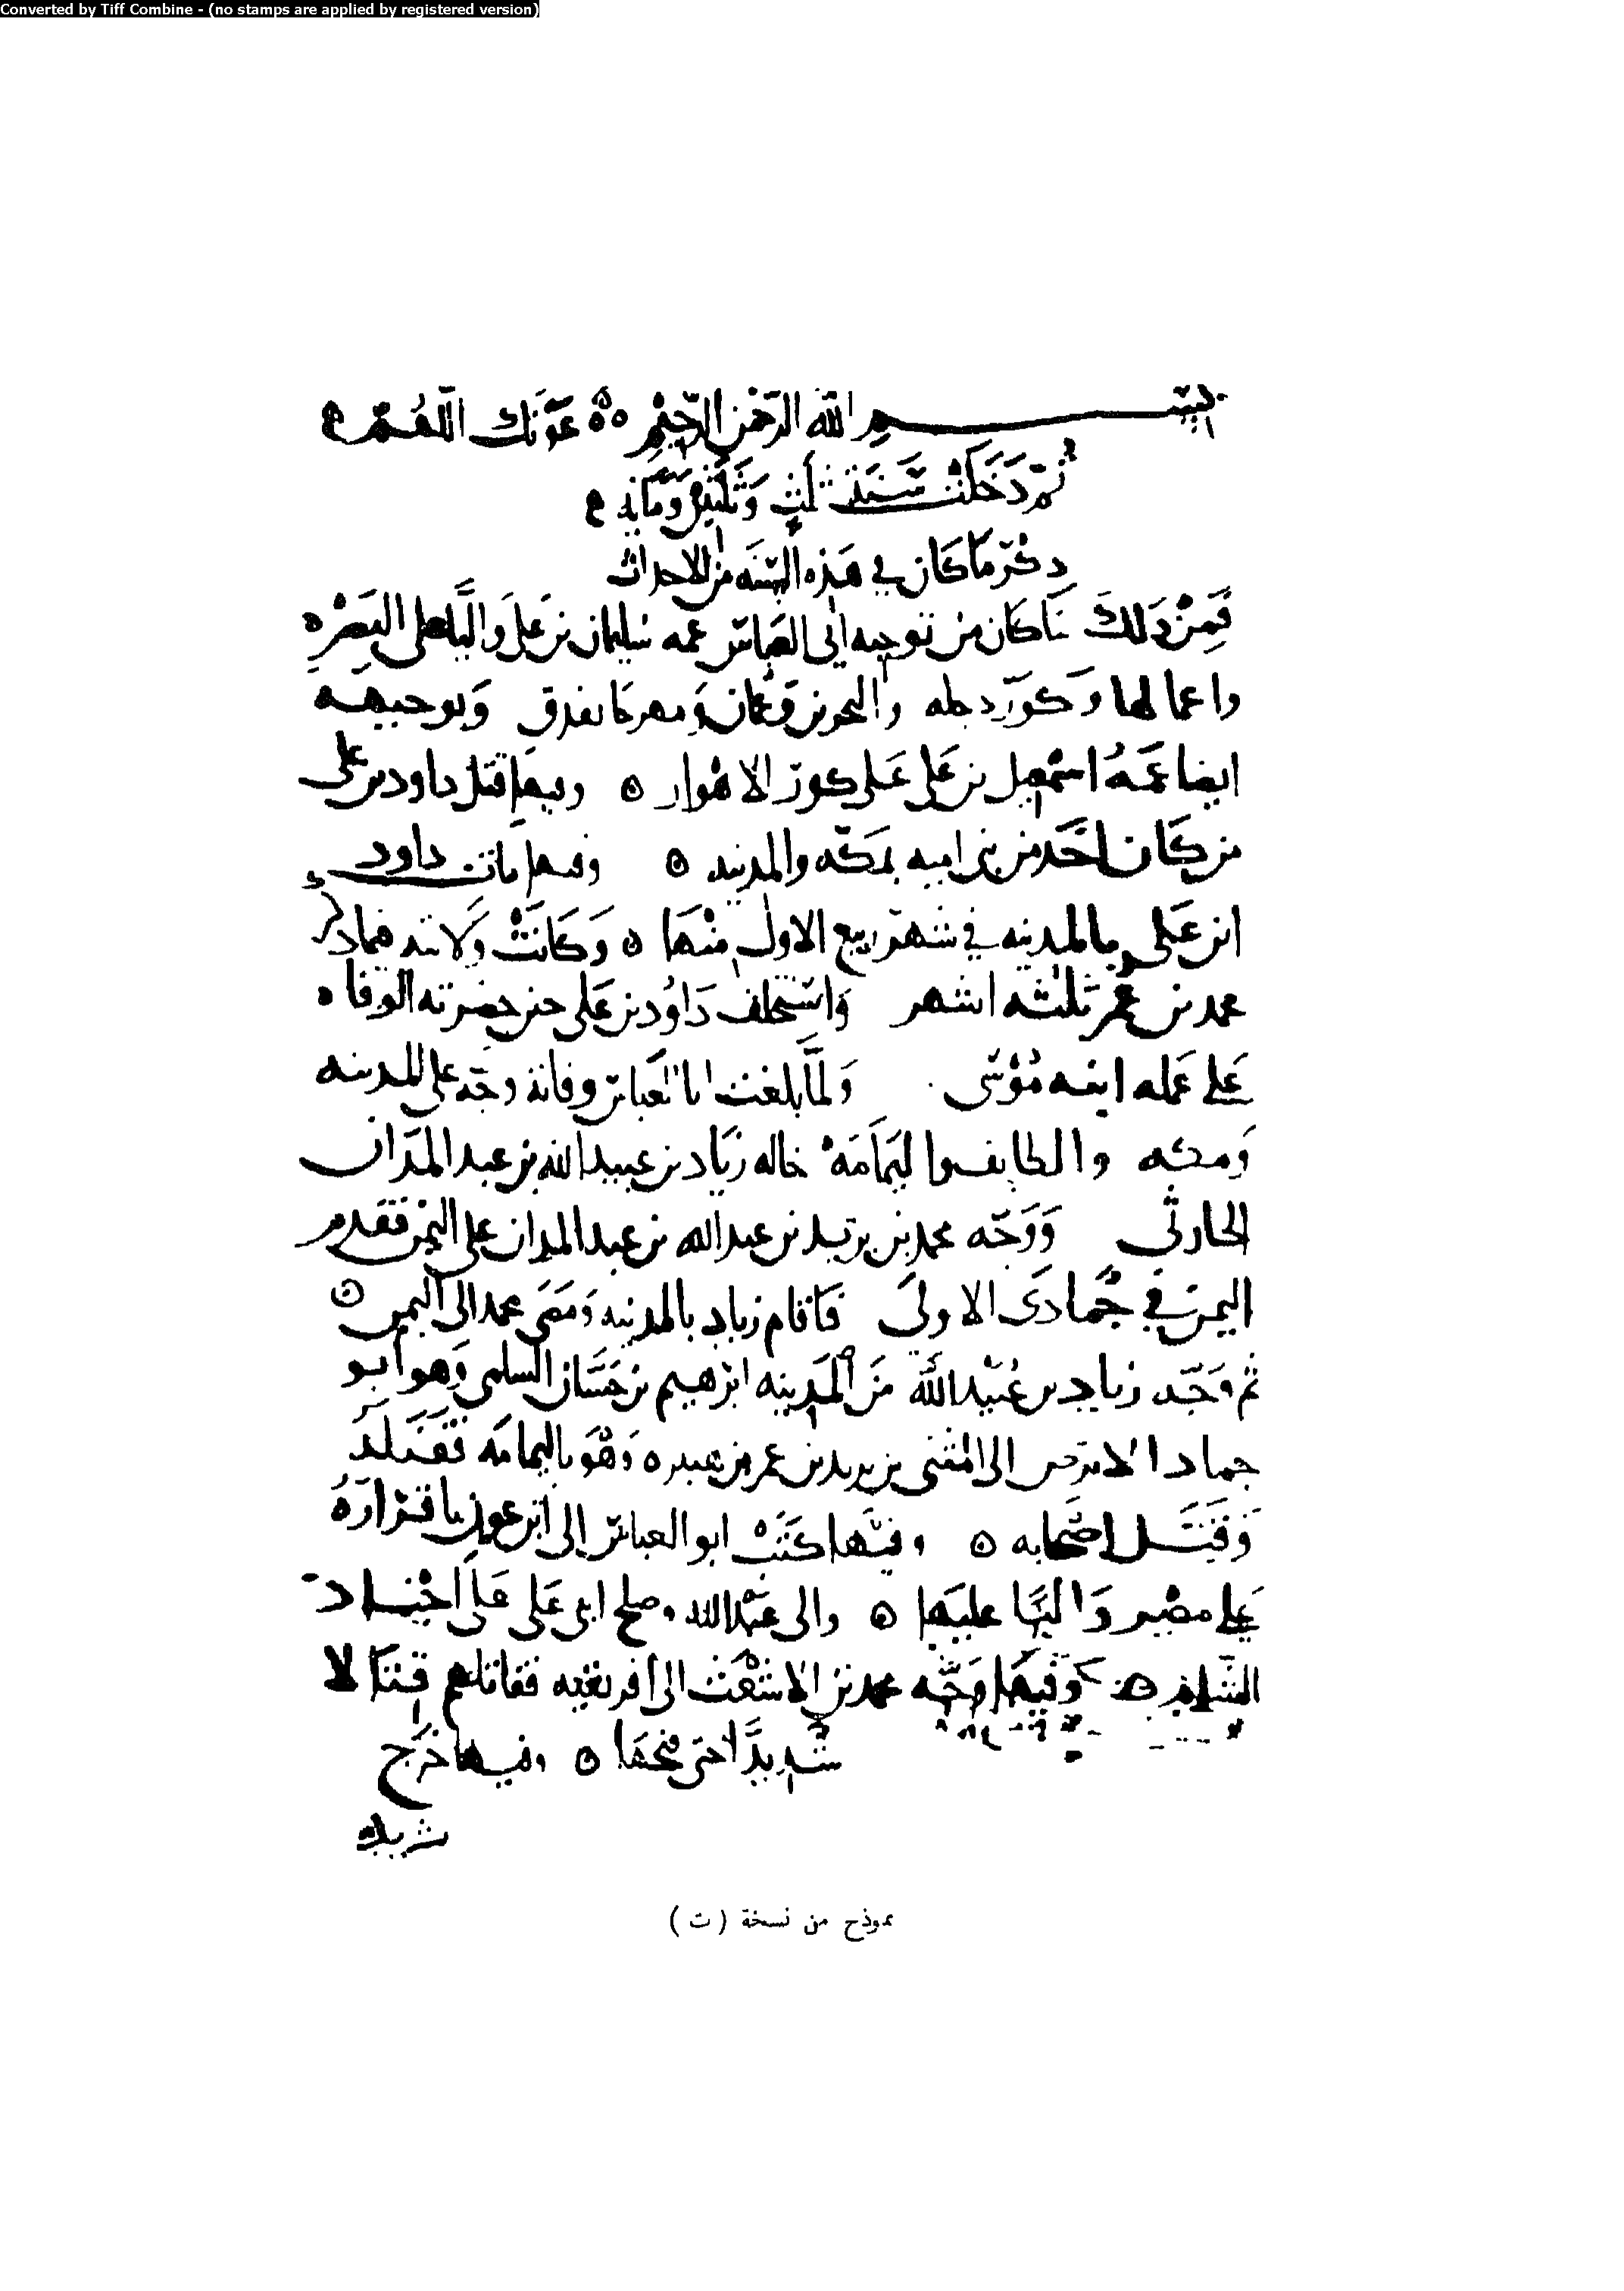 Converted by Tiff Combine - (no stamps are applied by registered version)
بسم الله الرحمن الرحيم ه عونك اللهم
ثم دخلت سنة ثلث وثلثين ومائه
ذكر ما كان في هذه السنه من الاحداث
فمن ذلك ما كان من توجيه ابى العباس عمه سليمان بن على واليا على البصره
واعمالها وكور دجله والبحرين وعمان ومهرجانقذق وتوجيهه
ايضا عمه اسمعيل بن على على كور الاهواز ه وفيها قتل داود بن على
من كان اخذ من بنى اميه بمكه والمدينه ه وفيها مات داود
ابن على بالمدينه في شهر ربيع الاول منها ه وكانت ولايته فيماذكر
محمد بن عمر ثلثه اشهر واستخلف داود بن على حين حضرته الوفاه
على عمله ابنه موسى ولما بلغت ابا العباس وفاته وجه على المدينه
ومكه والطايف واليمامه خاله زياد بن عبيد الله بن عبد المدان
الحارثى ووجه محمد بن يزيد بن عبد الله بن عبد المدان على اليمن فقدم
اليمن في جمادى الاولى فاقام زياد بالمدينه ومضى محمد الى اليمن ه
ثم وجه زياد بن عبيد الله من المدينه ابرهيم بن حسان السلمى وهو ابو
حماد الابرص الى المثنى بن يزيد بن عمر بن هبيره وهو باليمامه فقتله
وقتل اصحابه ه وفيها كتب ابو العباس الى ابى عون باقراره
على مصر واليا عليها ه والى عبد الله وصلح ابنى على على اجناد
الشام ه وفيها وجه محمد بن الاشعث الى افريقيه فقاتلهم قتالا
شديدا حتى فتحها ه وفيها خرج
شريك
نموذج من نسخة ( ت )